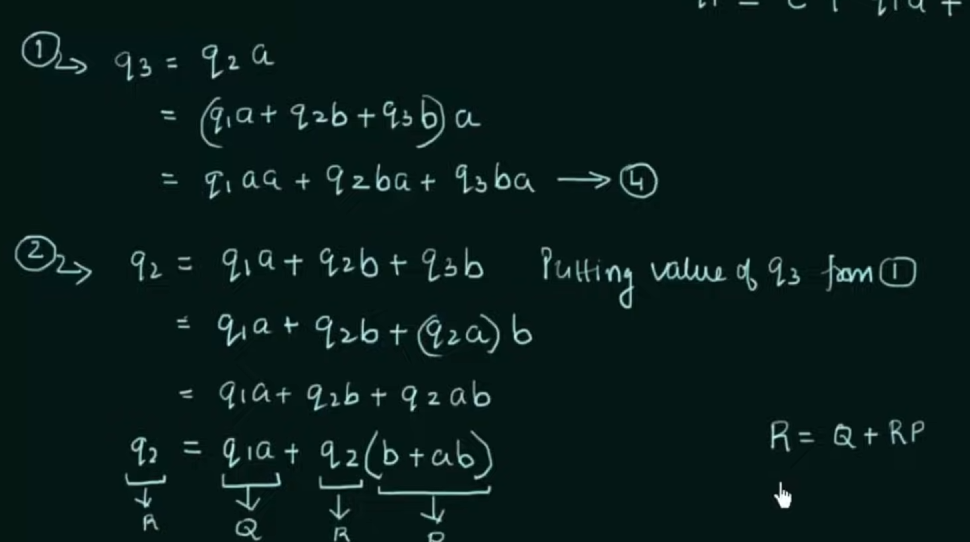 ① → q3 = q2 a
= (q1a + q2b + q3b) a
= q1aa + q2ba + q3ba → ④
② → q2 = q1a + q2b + q3b Putting value of q3 from ①
= q1a + q2b + (q2a) b
= q1a + q2b + q2ab
q2 = q1a + q2 (b + ab) R = Q + RP
R Q R